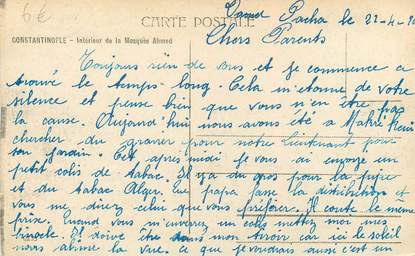 6€
CARTE POSTALE
Daoud Pacha le 22-4-
CONSTANTINOPLE – Intérieur de la Mosquée Ahmed
Chers Parents
Toujours rien de vous et je commence a
trouvé le temps long. Cela m'etonne de votre
silence et pense bien que vous n'en être pas
la cause. Aujourd'hui nous avons été a Makri Keui
chercher du gravier pour notre lieutenant pour
son jardin. Cet après midi je vous ai envoyé un
petit colis de tabac. Il y a du gros pour la pipe
et du tabac Alger. Que papa fasse la distribution et
vous me direz celui que vous préférer. Il coute le même
prix. Quand vous m'enverez un colis mettez moi mes
binocle. Il doive être dans mon tiroir car ici le soleil
nous abime la vue. ce que je voudrais aussi c'est un